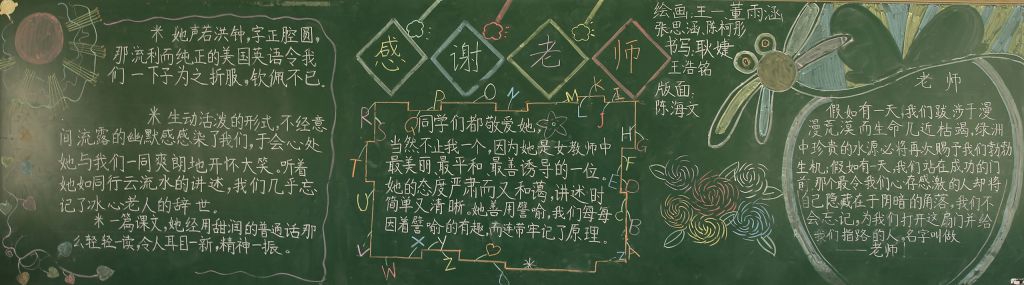 米 她声若洪钟,字正腔圆,
那流利而纯正的美国英语令我
们一下子为之折服,钦佩不已.
米 生动活泼的形式,不经意
间流露的幽默感感染了我们,于会心处
她与我们一同爽朗地开怀大笑。听着
她如同行云流水的讲述,我们几乎忘
记了冰心老人的辞世。
米一篇课文,她经用甜润的普通话那
么轻轻一读,令人耳目一新,精神一振。
感谢老师
R P O N M K I
S Q L J
T
U
V
W X Y Z
H G
F
E D
C B
A
同学们都敬爱她,
当然不止我一个,因为她是女教师中
最美丽、最平和、最善诱导的一位。
她的态度严肃而又和蔼,讲述时
简单又清晰。她善用譬喻,我们每每
因着譬喻的有趣,而连带牢记了原理。
绘画:王一 董雨涵
张思涵.陈柯彤
书写:耿婕
王浩铭
版面:
陈海文
老师
假如有一天,我们跋涉千漫
漫荒漠而生命几近枯竭,绿洲
中珍贵的水源必将再次赐予我们勃勃
生机,假如有一天,我们站在成功的门
前,那个最令我们心存感激的人却将
自己隐藏在于阴暗的角落,我们不
会忘记,为我们打开这扇门并给
我们指路的人,名字叫做
——老师